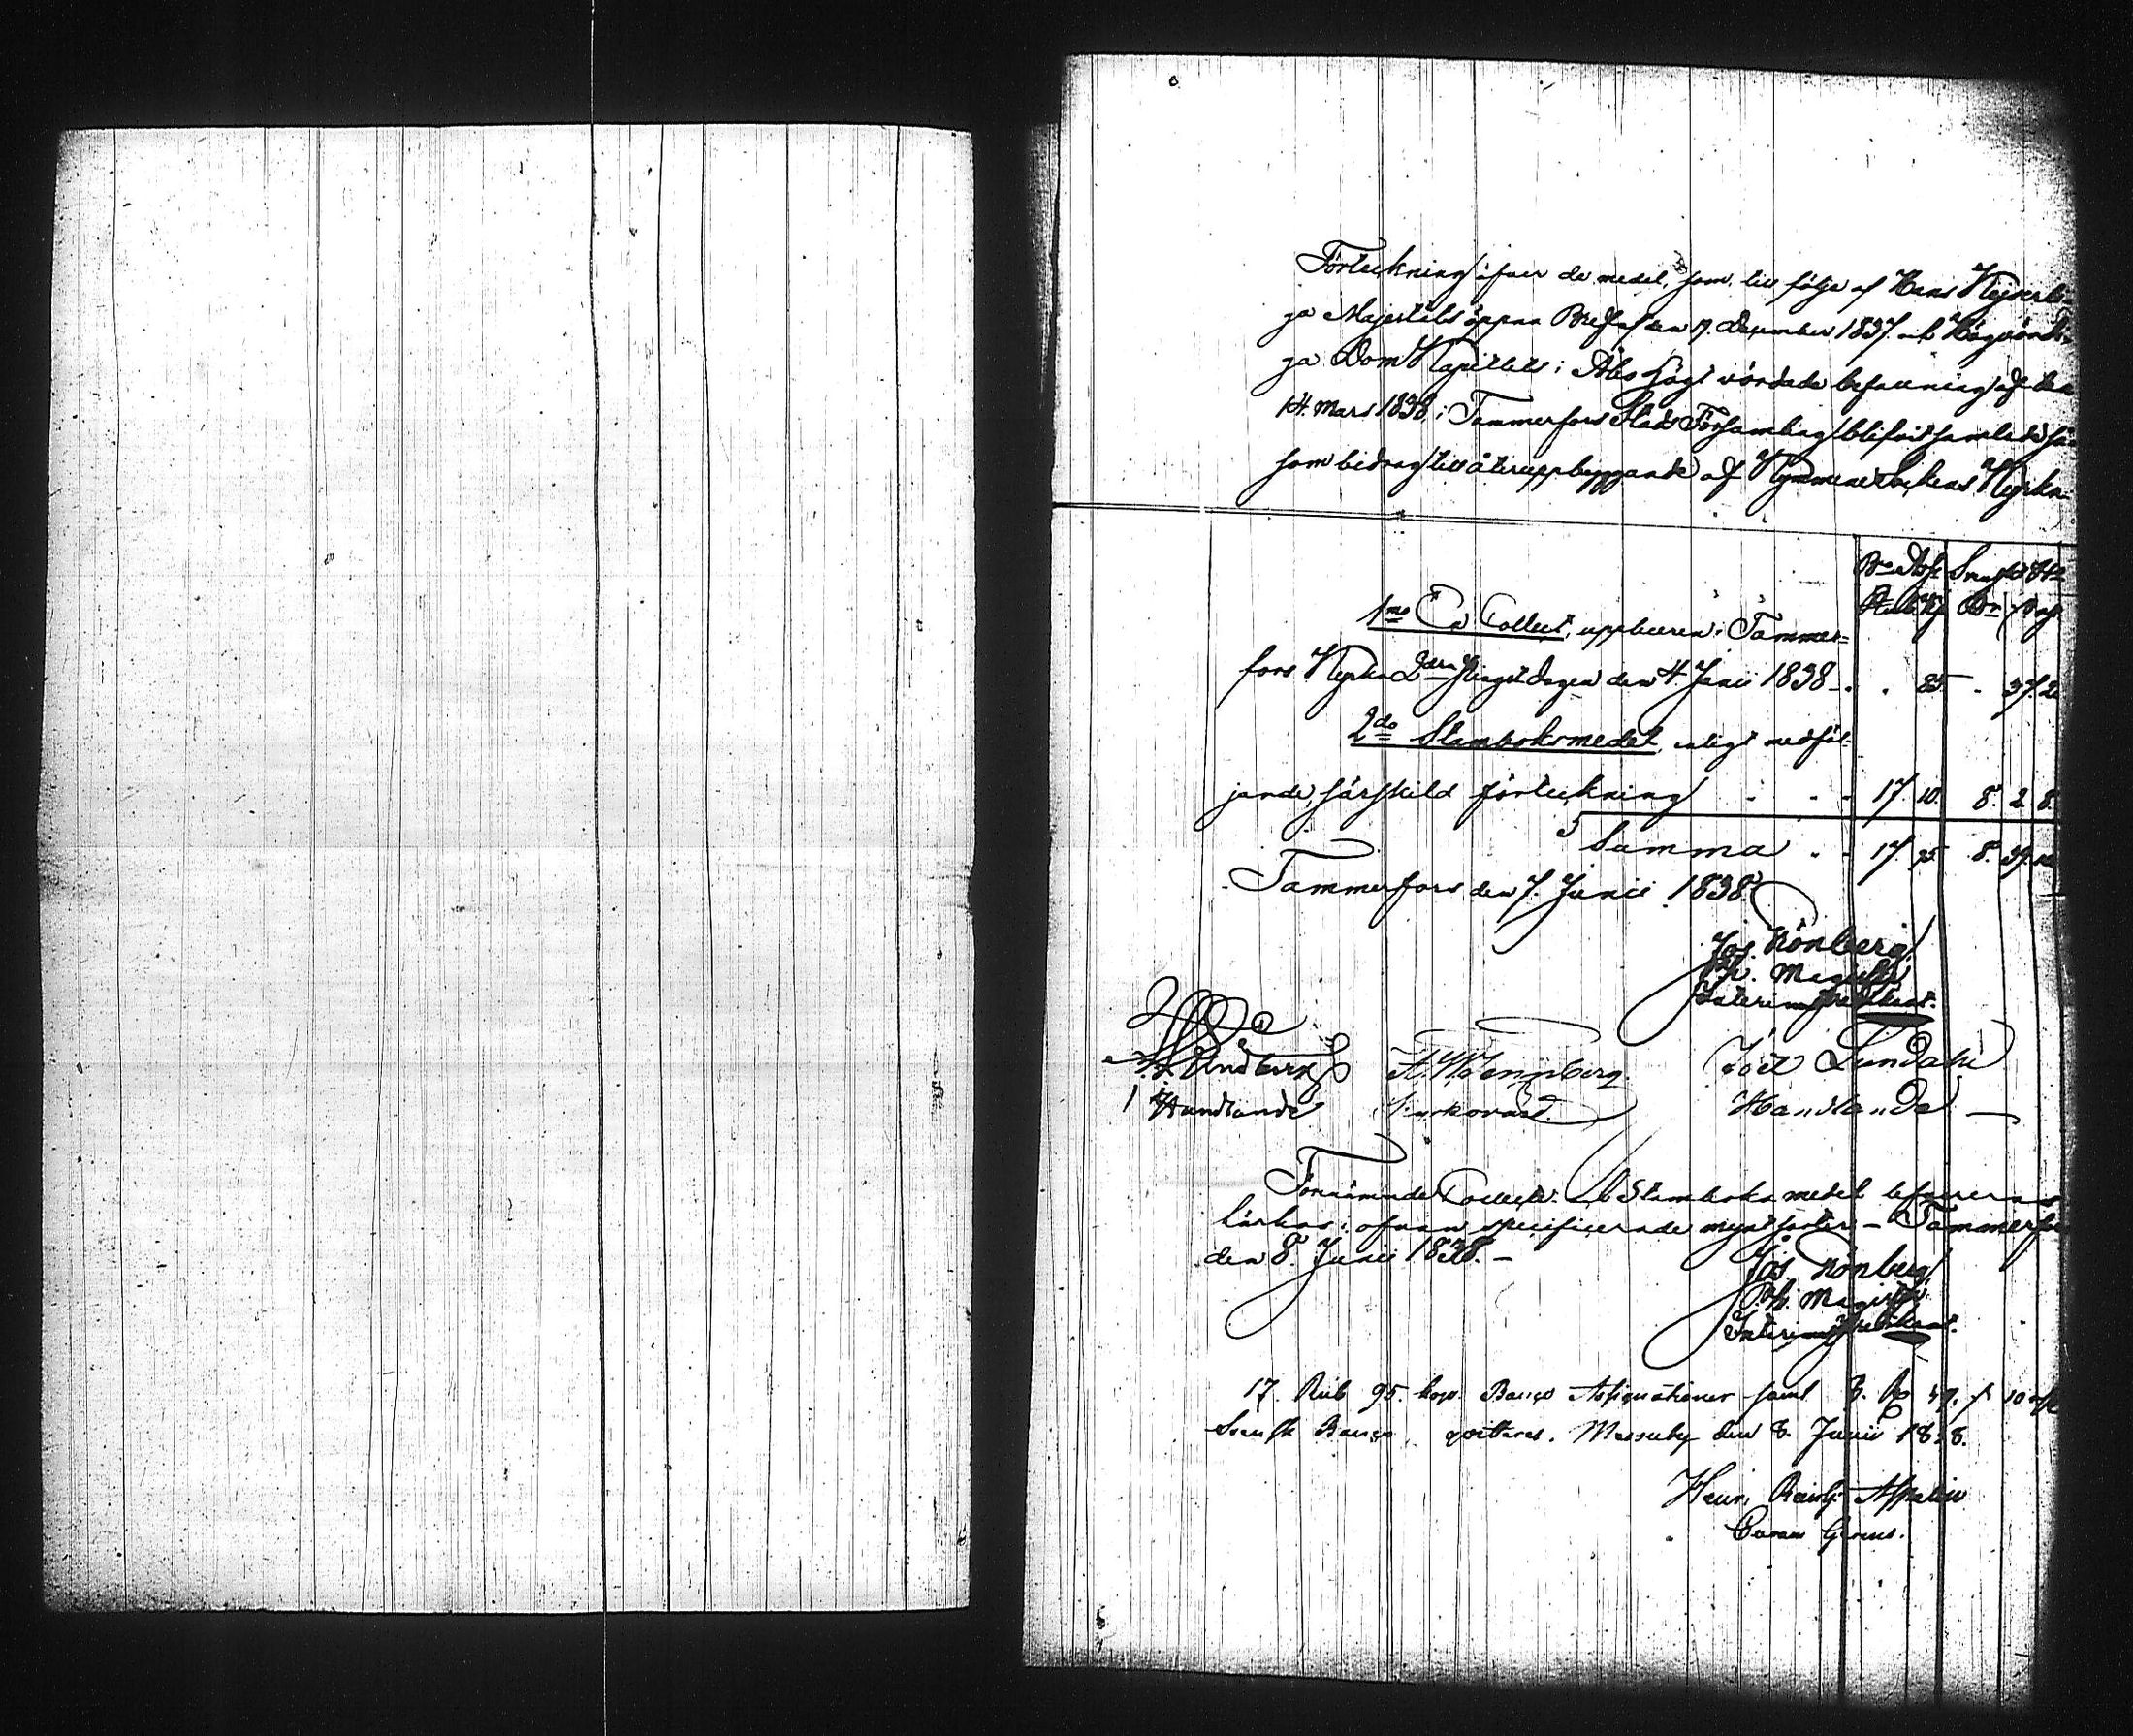 Förteckning öfver de medel, som till följe af Hans Kejserli-
ga Majestäts öppna Bref af den 17. December 1837. och Högvördi-
ga Dom Kapitlets i Åbo högt vördade befallning af den
14. Mars 1838, i Tammerfors Stads Församling blifvit samlade så-
som bidrag till återuppbyggande af Kymmene Sockens Kyrka.
Rub. Kop.
1mo En Collect, uppburen i Tammer=
fors Kyrka 2dra Pingstdagen den 4. Junii 1838 . . 85 - 37. 2
2do Stamboksmedel, enligt medföl-
jande, särskild förteckning . . . 17. 10. 8. 2. 8.
Summa . . 17. 95. 8. 39. 10
Tammerfors den 7. Junii 1838.
Jos. Rönberg
Ph. Magister
Interims Predikant.
Lindberg
Joel Lundahl
Handlande
Kyrkovärd
Handlande
Förenämnde Collect och Stamboks medel befinnas
i ofvan specificerade myntsorter. - Tammerfors
den 8. Junii 1838. -
Jos. Rönberg
Ph. Magister
Interims Predikant.
17. Rub 95. kop. Banco Assignationer samt 8. 39. 10
Svensk Banco qvitteras. Messuby den 8. Junii 1838.
Henr.
Curam Gerens.